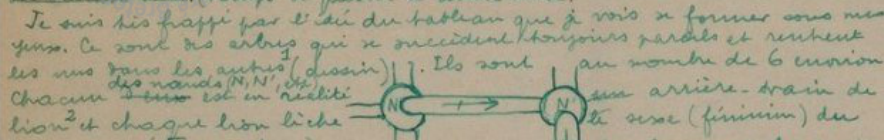 Je suis très frappé par l'idée du tableau que je vois se former sous mes
yeux. Ce sont des arbres qui se succèdent toujours pareils et rentrent
les uns dans les autres¹ (dessin). Ils sont au nombre de 6 environ
des nœuds (N, N', etc)
Chacun est en réalité N N' un arrière-train de
lion² et chaque lion lèche le sexe (féminin) du